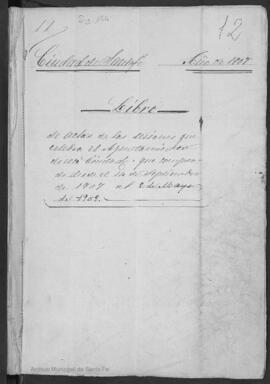 11
12
Ciudad de Santafe Año de 1907
Libro
de actas de las sesiones que
celebra el Ayuntamiento
de esta Ciudad, que
desde el 14 de Septiembre
de 1907 al 2 de Mayo
de 1909.
Archivo Municipal de Santa Fe